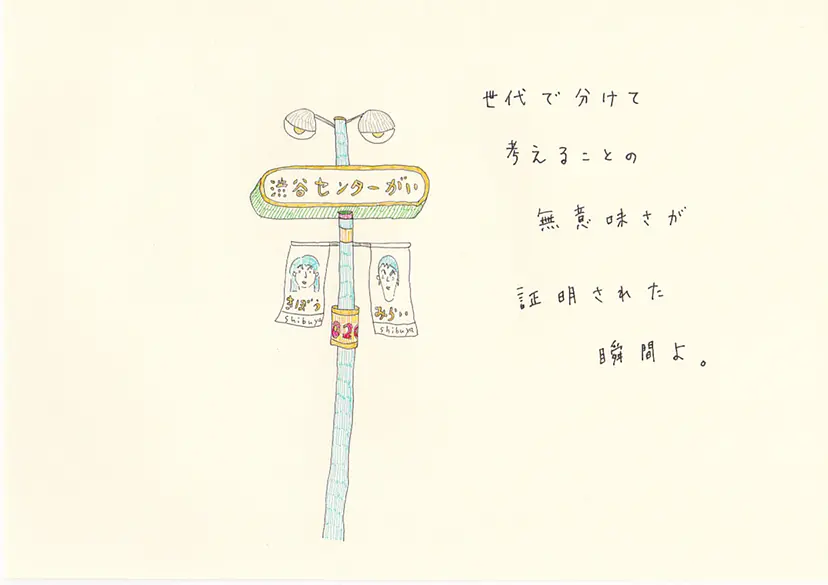 世代で分けて
考えることの
無意味さが
証明された
瞬間よ。
渋谷センターがい
きぼう
shibuya
みらい
shibuya